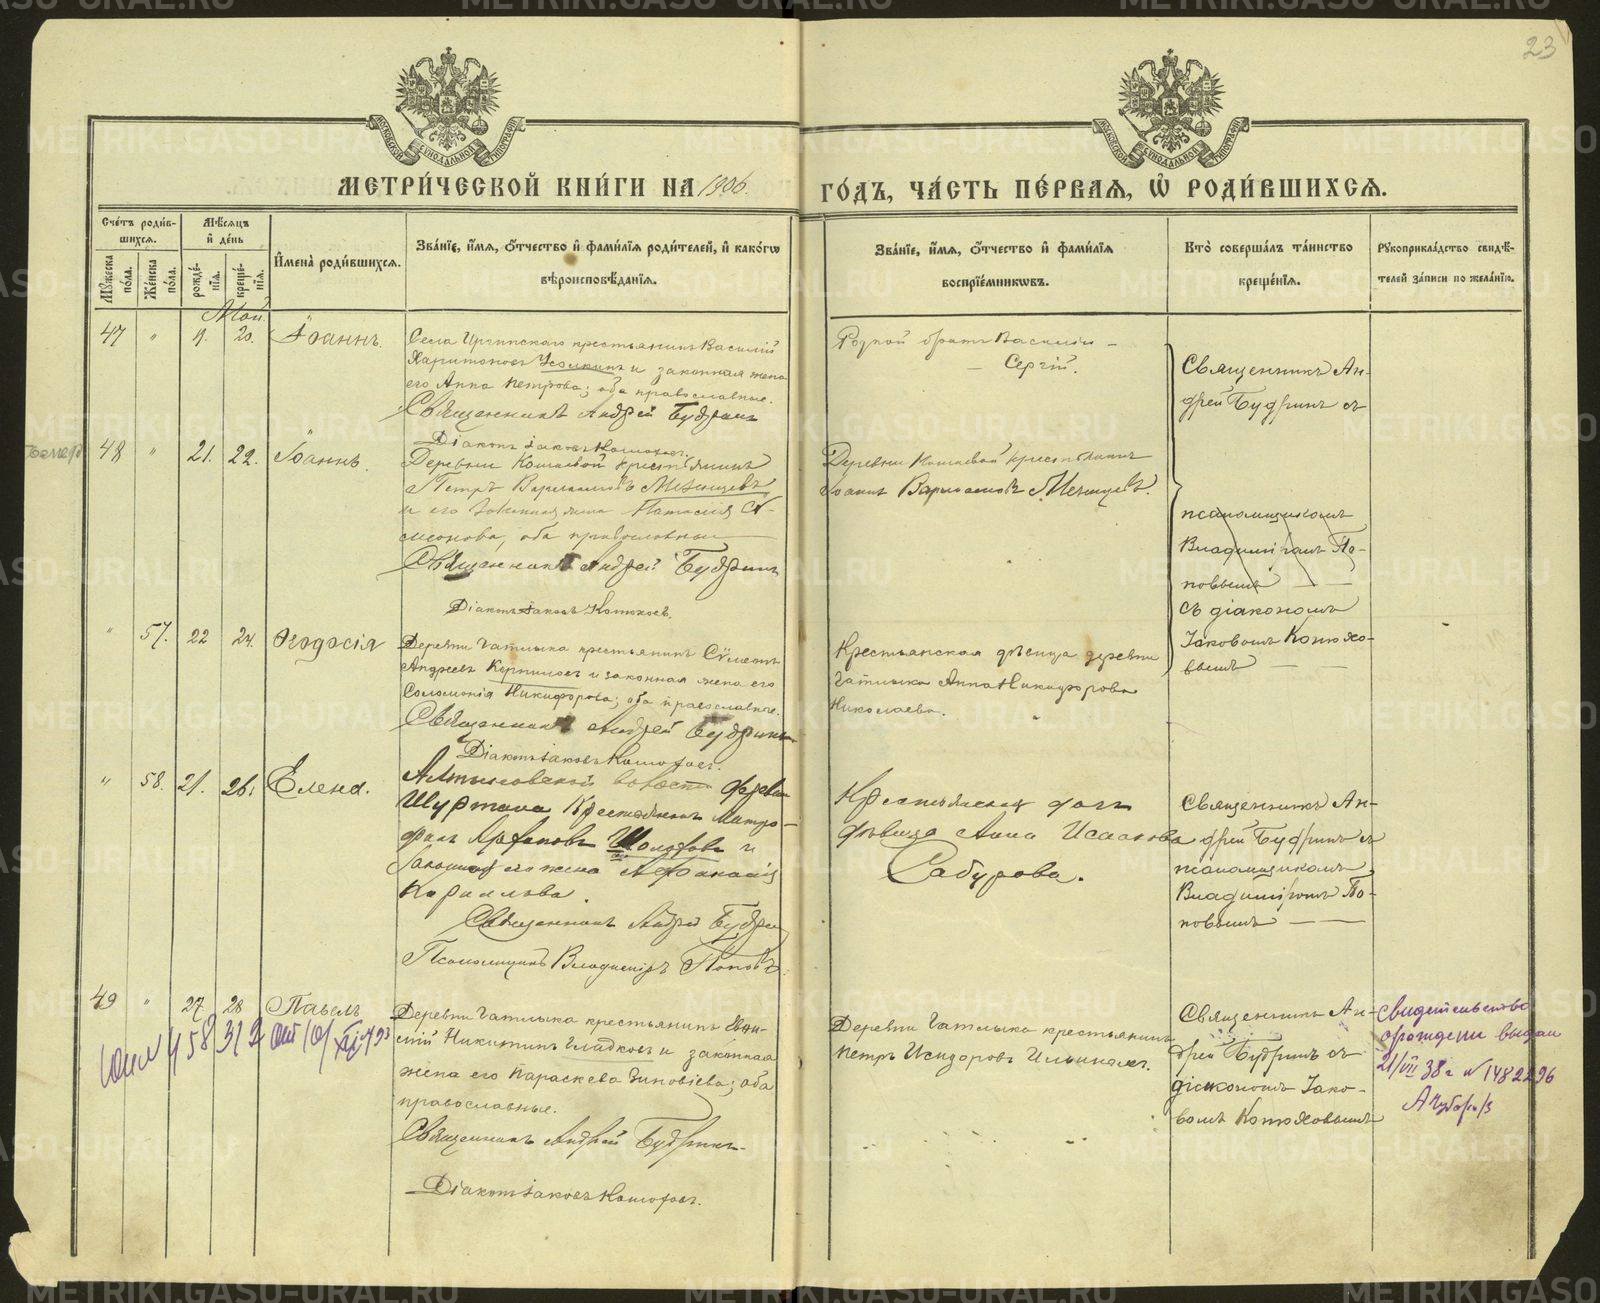 23
МОСКОВСКОЙ СѴНОДАЛЬНОЙ ТИПОГРАФІИ
МОСКОВСКОЙ СѴНОДАЛЬНОЙ ТИПОГРАФІИ
МЕТРИ́ЧЕСКОЙ КНИ́ГИ НА 1906. ГО́ДЪ, ЧА́СТЬ ПЕ́РВАЯ, Ѡ҆ РОДИ́ВШИХСЯ.
Сче́тъ роди́в-
шихся.
Мѹ́жеска по́ла.
Же́нска по́ла.
Мѣ́сяцъ
и҆ де́нь
рожде́-
нїя.
креще́-
нїя.
И҆мена̀ роди́вшихся.
Зва́нїе, и҆́мя, ѻ҆́тчество и҆ фами́лїя роди́телей, и҆ како́гѡ
вѣроисповѣ́данїя.
Зва́нїе, и҆́мя, ѻ҆́тчество и҆ фами́лїя
воспрїе́мникѡвъ.
Кто̀ соверша́лъ та́инство
креще́нїя.
Рѹкоприкла́дство свидѣ́-
телей за́писи по жела́нїю.
Май.
47 " 19. 20. Іоаннъ.
Села Иргинскаго крестьянинъ Василій
Харитоновъ Усолкинъ и законная жена
его Анна Петрова; оба православные.
Священникъ Андрей Будринъ
Діаконъ Іаковъ Котюховъ.
Родной братъ Василія –
– Сергій.
Священникъ Ан-
дрей Будринъ съ
48 " 21. 22. Іоаннъ.
Деревни Кошаевой крестьянинъ
Петръ Варлаамовъ Мезенцевъ
и его законная жена Наталія Си-
меонова, оба православные
Священникъ Андрей Будринъ
Діаконъ Іаковъ Котюховъ.
Деревни Кошаевой крестьянинъ
Іоаннъ Варлаамовъ Мезенцевъ.
псаломщикомъ
Владиміромъ По-
повымъ —
съ діакономъ
Іаковомъ Котюхо-
вымъ — —
" 57. 22 24. Ѳеодосія
Деревни Чатлыка крестьянинъ Сѵмеонъ
Андреевъ Корниловъ и законная жена его
Соломонія Никифорова; оба православные.
Священникъ Андрей Будринъ
Діаконъ Іаковъ Котюховъ.
Крестьянская дѣвица деревни
Чатлыка Анна Никифорова
Николаева.
" 58. 21. 26. Елена.
волости деревни
Шуртана Крестьянинъ Митро-
фанъ и
законная его жена
Кирилова.
Священникъ Андрей Будринъ
Псаломщикъ Владиміръ Поповъ.
Крестьянская дочь
дѣвица Анна Исаакова
Сабурова.
Священникъ Ан-
дрей Будринъ съ
псаломщикомъ
Владиміромъ По-
повымъ — —
49 " 27 28 Павелъ
Деревни Чатлыка крестьянинъ
Никитинъ Гладковъ и законная
жена его Параскева Зиновіева; оба
православные.
Священникъ Андрей Будринъ
Діаконъ Іаковъ Котюховъ.
Деревни Чатлыка крестьянинъ
Петръ Исидоровъ Ильиныхъ.
Священникъ Ан-
дрей Будринъ съ
діакономъ Іако-
вомъ Котюховымъ
Свидетельство
о рождении выдан
21/VII 38 г № 1482296
METRIKI.GASO-URAL.RU